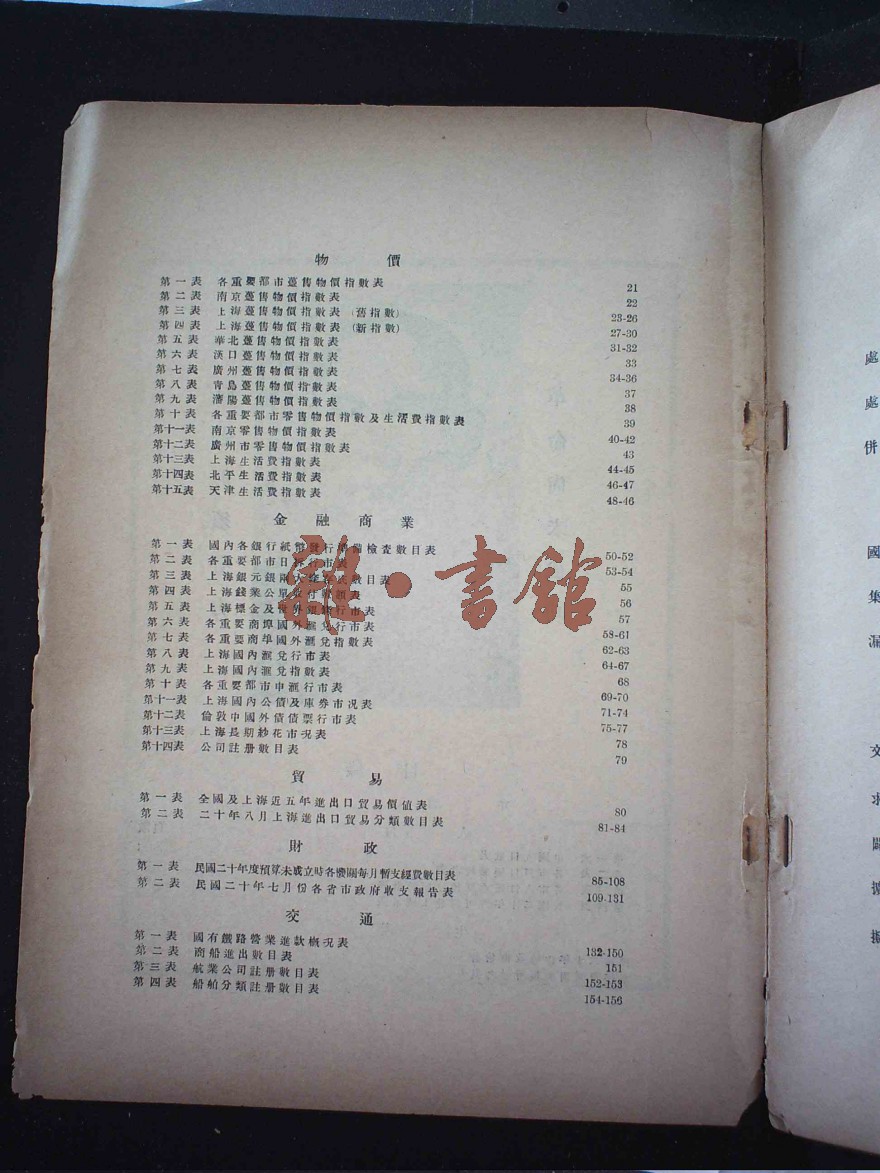 物價
第一表 各重要都市躉售物價指數表 21
第二表 南京躉售物價指數表 22
第三表 上海躉售物價指數表(舊指數) 23-26
第四表 上海躉售物價指數表(新指數) 27-30
第五表 華北躉售物價指數表 31-32
第六表 漢口躉售物價指數表 33
第七表 廣州躉售物價指數表 34-36
第八表 青島躉售物價指數表 37
第九表 瀋陽躉售物價指數表 38
第十表 各重要都市零售物價指數及生活費指數表 39
第十一表 南京零售物價指數表 40-42
第十二表 廣州市零售物價指數表 43
第十三表 上海生活費指數表 44-45
第十四表 北平生活費指數表 46-47
第十五表 天津生活費指數表 48-46
金融商業
第一表 國內各銀行紙幣發行準備檢查數目表 50-52
第二表 各重要都市日拆行市表 53-54
第三表 上海銀元銀兩 數目表 55
第四表 上海錢業公單收付 額表 56
第五表 上海標金及世界銀 行市表 57
第六表 各重要商埠國外滙兌行市表 58-61
第七表 各重要商埠國外滙兌指數表 62-63
第八表 上海國內滙兌行市表 64-67
第九表 上海國內滙兌指數表 68
第十表 各重要都市申滙行市表 69-70
第十一表 上海國內公債及庫券市况表 71-74
第十二表 倫敦中國外債債票行市表 75-77
第十三表 上海長期紗花市况表 78
第十四表 公司註册數目表 79
貿易
第一表 全國及上海近五年進出口貿易價值表 80
第二表 二十年八月上海進出口貿易分類數目表 81-84
財政
第一表 民國二十年度預算未成立時各機關每月暫支經費數目表 85-108
第二表 民國二十年七月份各省市政府收支報告表 109.131
交通
第一表 國有鐵路營業進款概况表 132-150
第二表 商船進出數目表 151
第三表 航業公司註册數目表 152-153
第四表 船舶分類註册數目表 154-156
雜·書館
處
處
併
國
集
漏
文
求